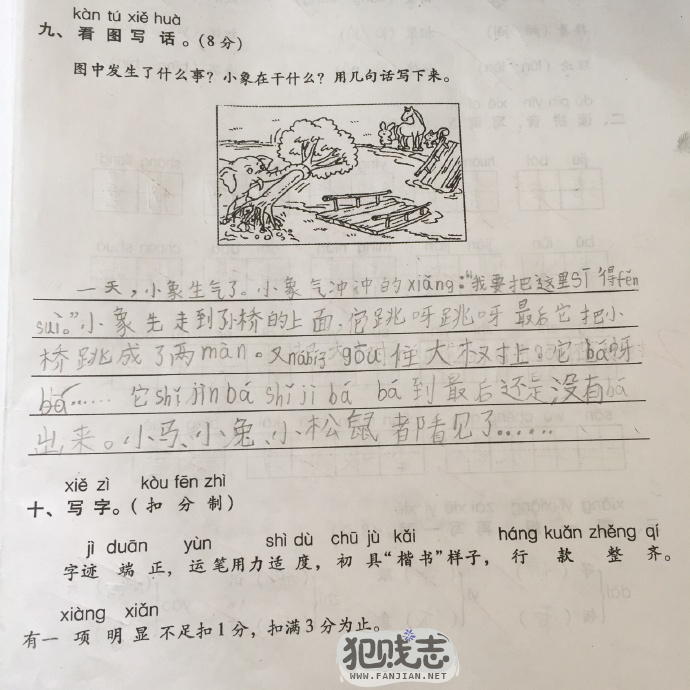 kàn tú xiě huà
九、看图写话。(8分)
图中发生了什么事?小象在干什么?用几句话写下来。
一天,小象生气了。小象气冲冲的xiǎng:“我要把这里SĪ得fěn
suì。”小象先走到小桥的上面,它跳呀跳呀最后它把小
桥跳成了两màn。又 gōu住大树上。它bá呀
bá……它shǐ jìn bá shǐ jì bá bá到最后还是没有bá
出来。小马、小兔、小松鼠都看见了……
xiě zì kòu fēn zhì
十、写字。(扣分制)
jì duān yùn shì dù chū jù kǎi háng kuǎn zhěng qí
字迹端正,运笔用力适度,初具“楷书”样子,行款整齐。
xiàng xiǎn
有一项明显不足扣1分,扣满3分为止。
犯贱志
WWW.FANJIAN.NET